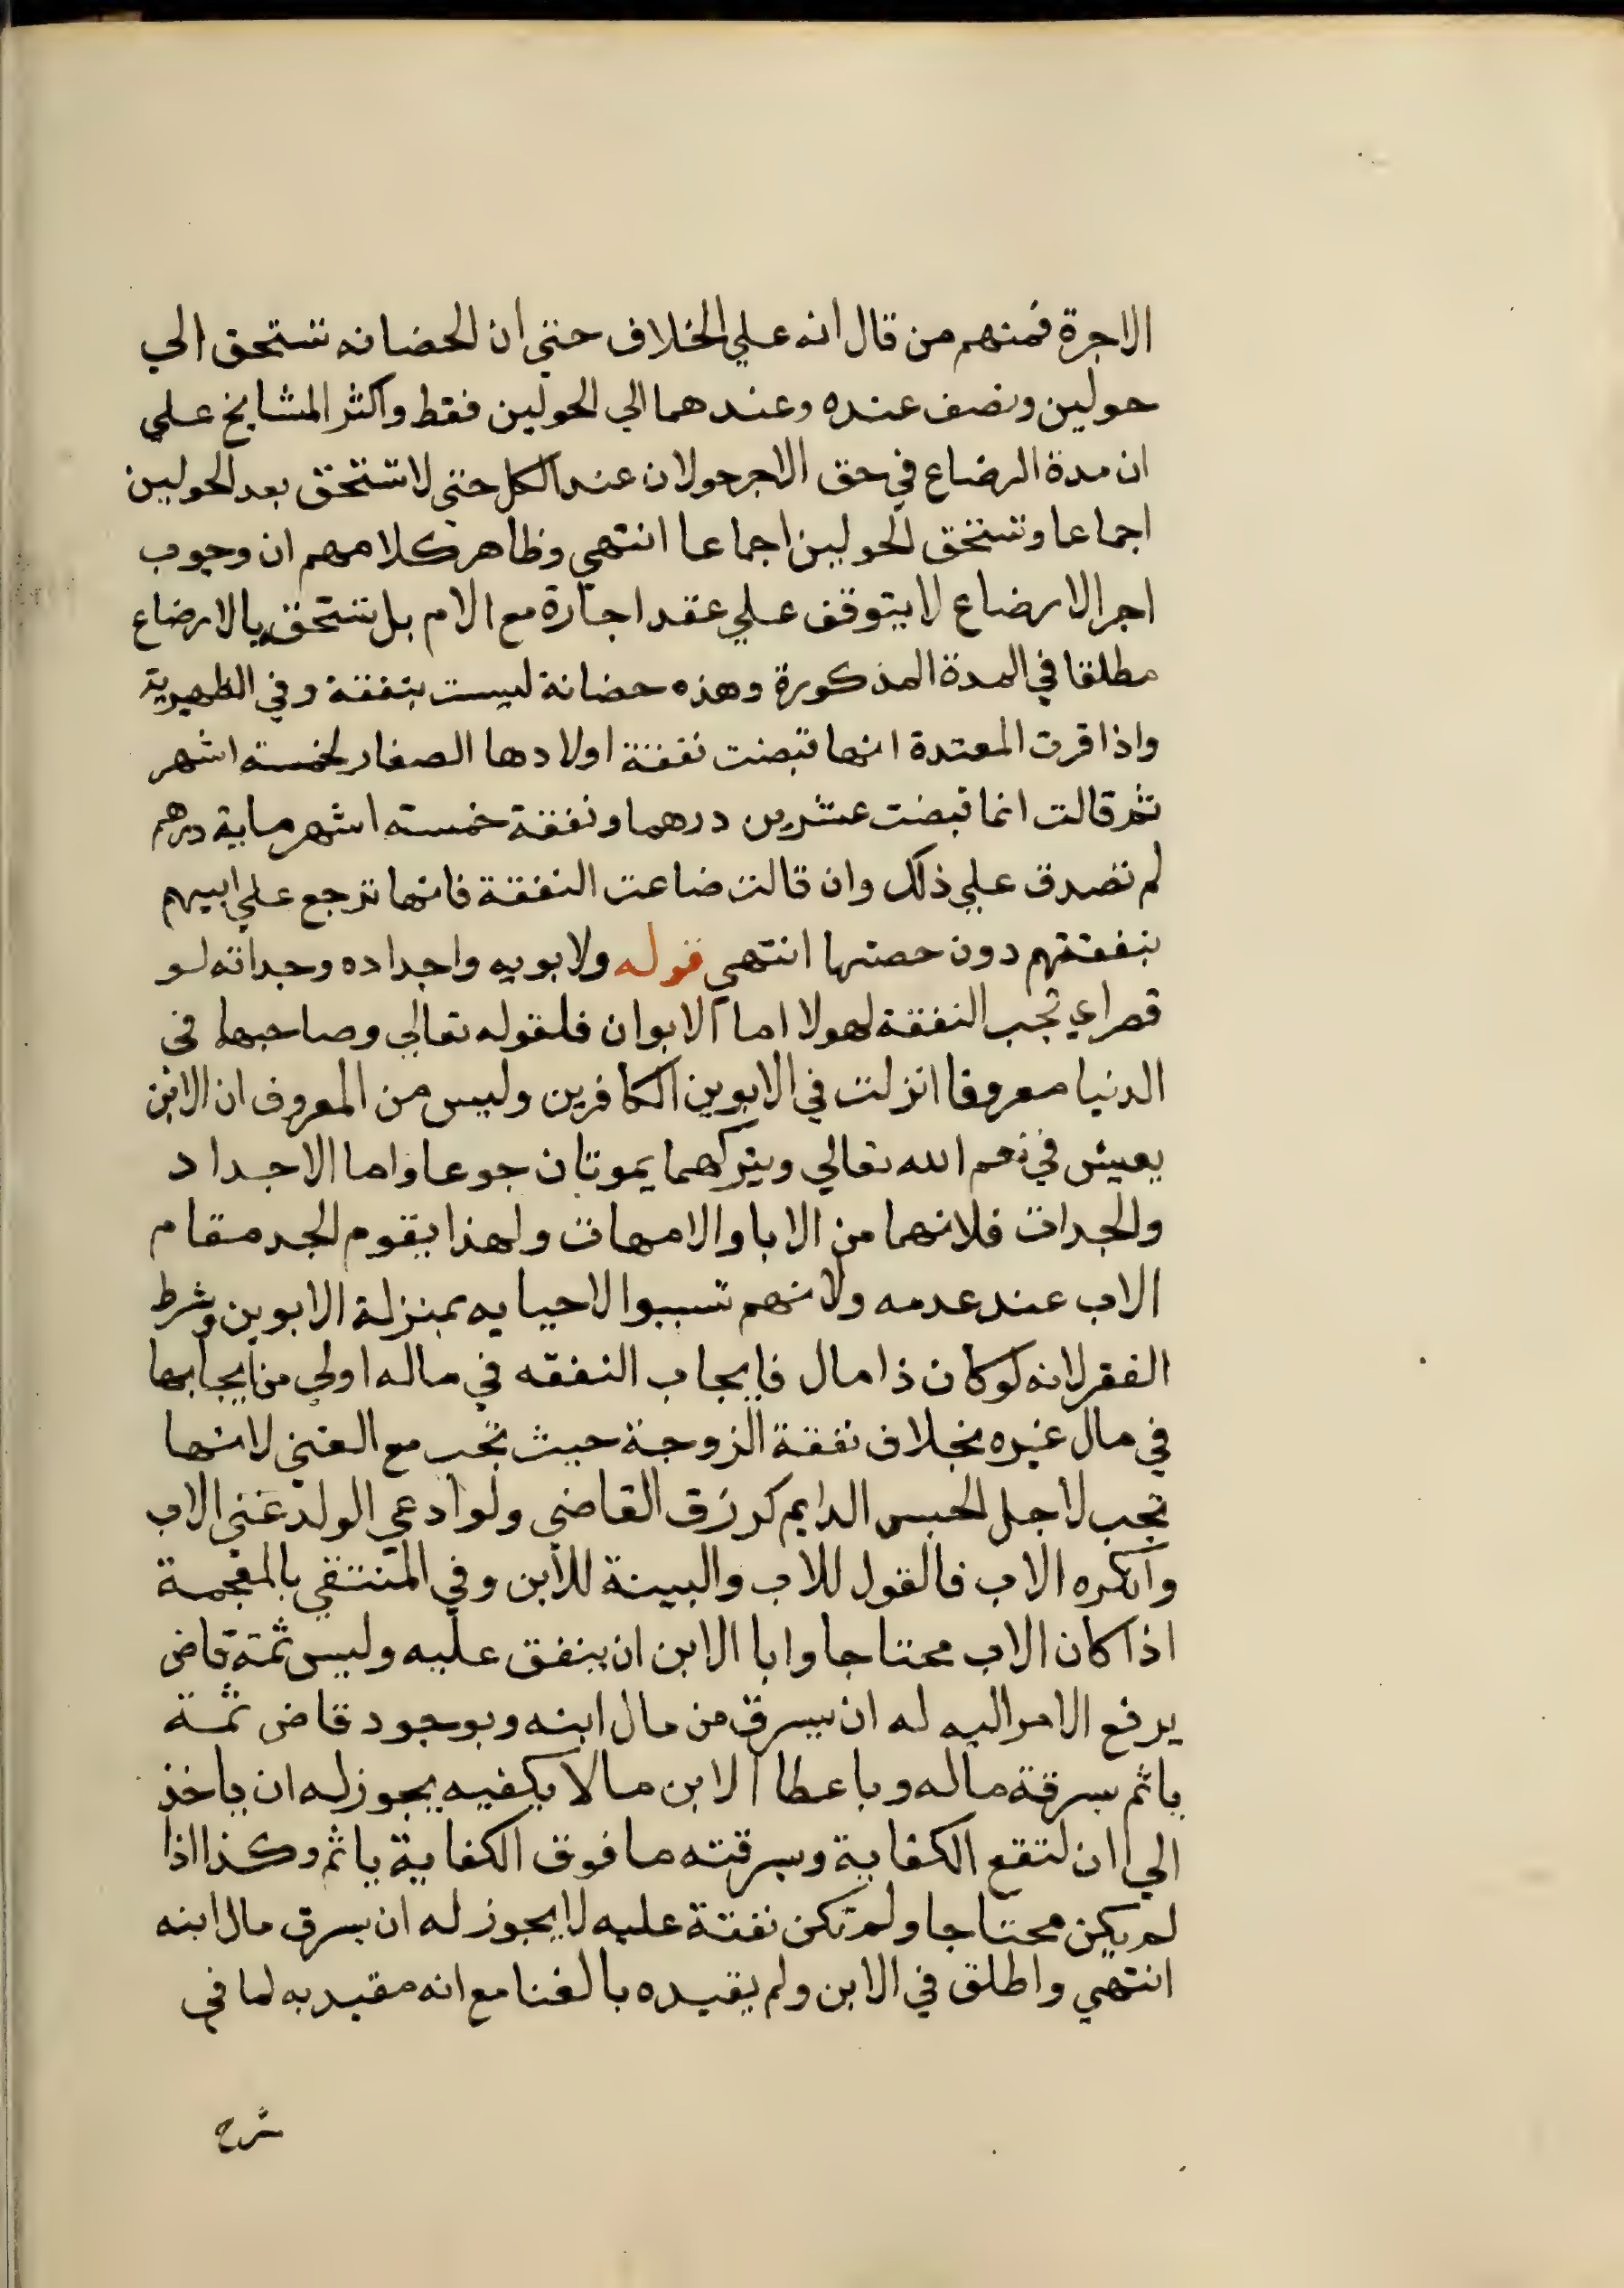 الاجرة فمنهم من قال انه علي الخلاف حتي ان الحضانه تستحق الي
حولين ونصف عنده وعندهما الي الحولين فقط واكثر المشايخ علي
ان مدة الرضاع في حق الاجر حولان عند الكل حتي لا تستحق بعد الحولين
اجماعا وتستحق الحولين اجماعا انتهي وظاهر كلامهم ان وجوب
اجر الارضاع لا يتوقف علي عقد اجارة مع الام بل تستحق بالارضاع
مطلقا في المدة المذكورة وهذه حضانة ليست بنفقة وفي الظهيرية
واذا قرت المعتدة انها قبضت نفقة اولادها الصغار لخمسة اشهر
ثم قالت انما قبضت عشرين درهما ونفقة خمسة اشهر ماية درهم
لم تصدق علي ذلك وان قالت ضاعت النفقة فانها ترجع علي ابيهم
بنفقتهم دون حصتها انتهي قوله ولابويه واجداده وجداته لو
قعراي تجب النفقة لهولا اما الابوان فلقوله تعالي وصاحبهما في
الدنيا معروفا انزلت في الابوين الكافرين وليس من المعروف ان الابن
يعيش في نعم الله تعالي ويتركهما يموتان جوعا واما الاجداد
والجدات فلانهما من الابا والامهات ولهذا يقوم الجد مقام
الاب عند عدمه ولانهم تسببوا لاحيايه بمنزلة الابوين وشرط
الفقر لانه لو كان ذا مال فايجاب النفقه في ماله اولي من ايجابها
في مال غيره بخلاف نفقة الزوجة حيث تجب مع الغني لانها
تجب لاجل الحبس الدايم كرزق القاضي ولو ادعي الولد غني الاب
وانكره الاب فالقول للاب والبينة للابن وفي المنتقي بالمعجمة
اذا كان الاب محتاجا وابا الابن ان ينفق عليه وليس ثمة قاض
يرفع الامر اليه له ان يسرق من مال ابنه وبوجود قاض ثمة
ياثم بسرقة ماله وباعطا الابن مالا يكفيه يجوز له ان ياخذ
الي ان لتقع الكفاية وسرقته ما فوق الكفاية ياثم وكذا اذا
لم يكن محتاجا ولم تكن نفقة عليه لا يجوز له ان يسرق مال ابنه
انتهي واطلق في الابن ولم يقيده بالغنا مع انه مقيد به لما في
شرح